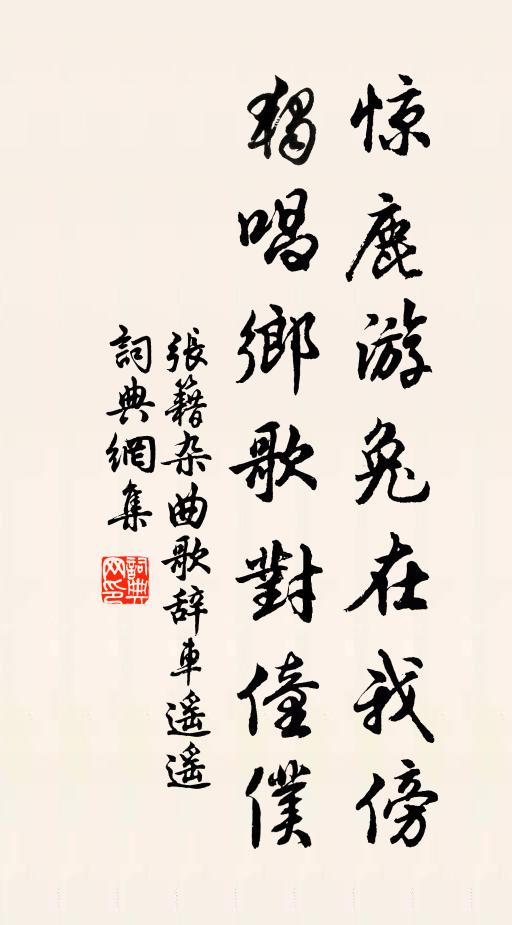 惊鹿游兔在我傍
獨唱鄉歌對僮僕
張籍杂曲歌辞車遥遥
詞典網集
詞典网印